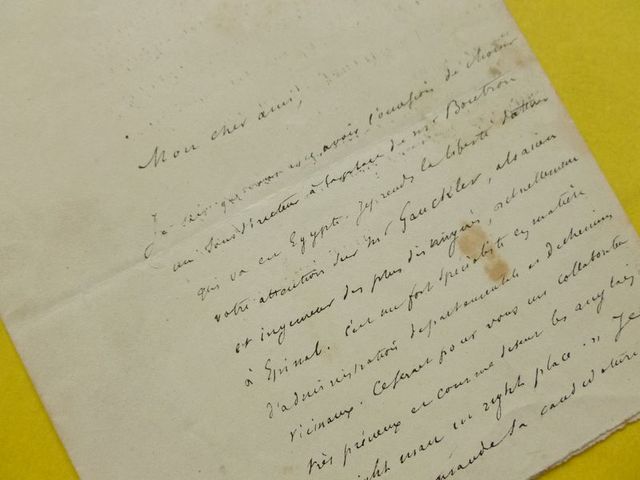 Mon cher ami,
Je sais que vous avez l'occasion de choisir
un sous directeur à la place de Mr Boutron
qui va en Egypte. Je prends la liberté d'attirer
votre attention sur Mr Gauckler, alsacien
et ingenieur des plus distingués, actuellement
à Epinal. C'est un fort spécialiste en matière
d'administration départementale et de chemins
vicinaux. Ce serait pour vous un collaborateur
très précieux et comme disent les anglais
right man in right place." Je
sa candidature